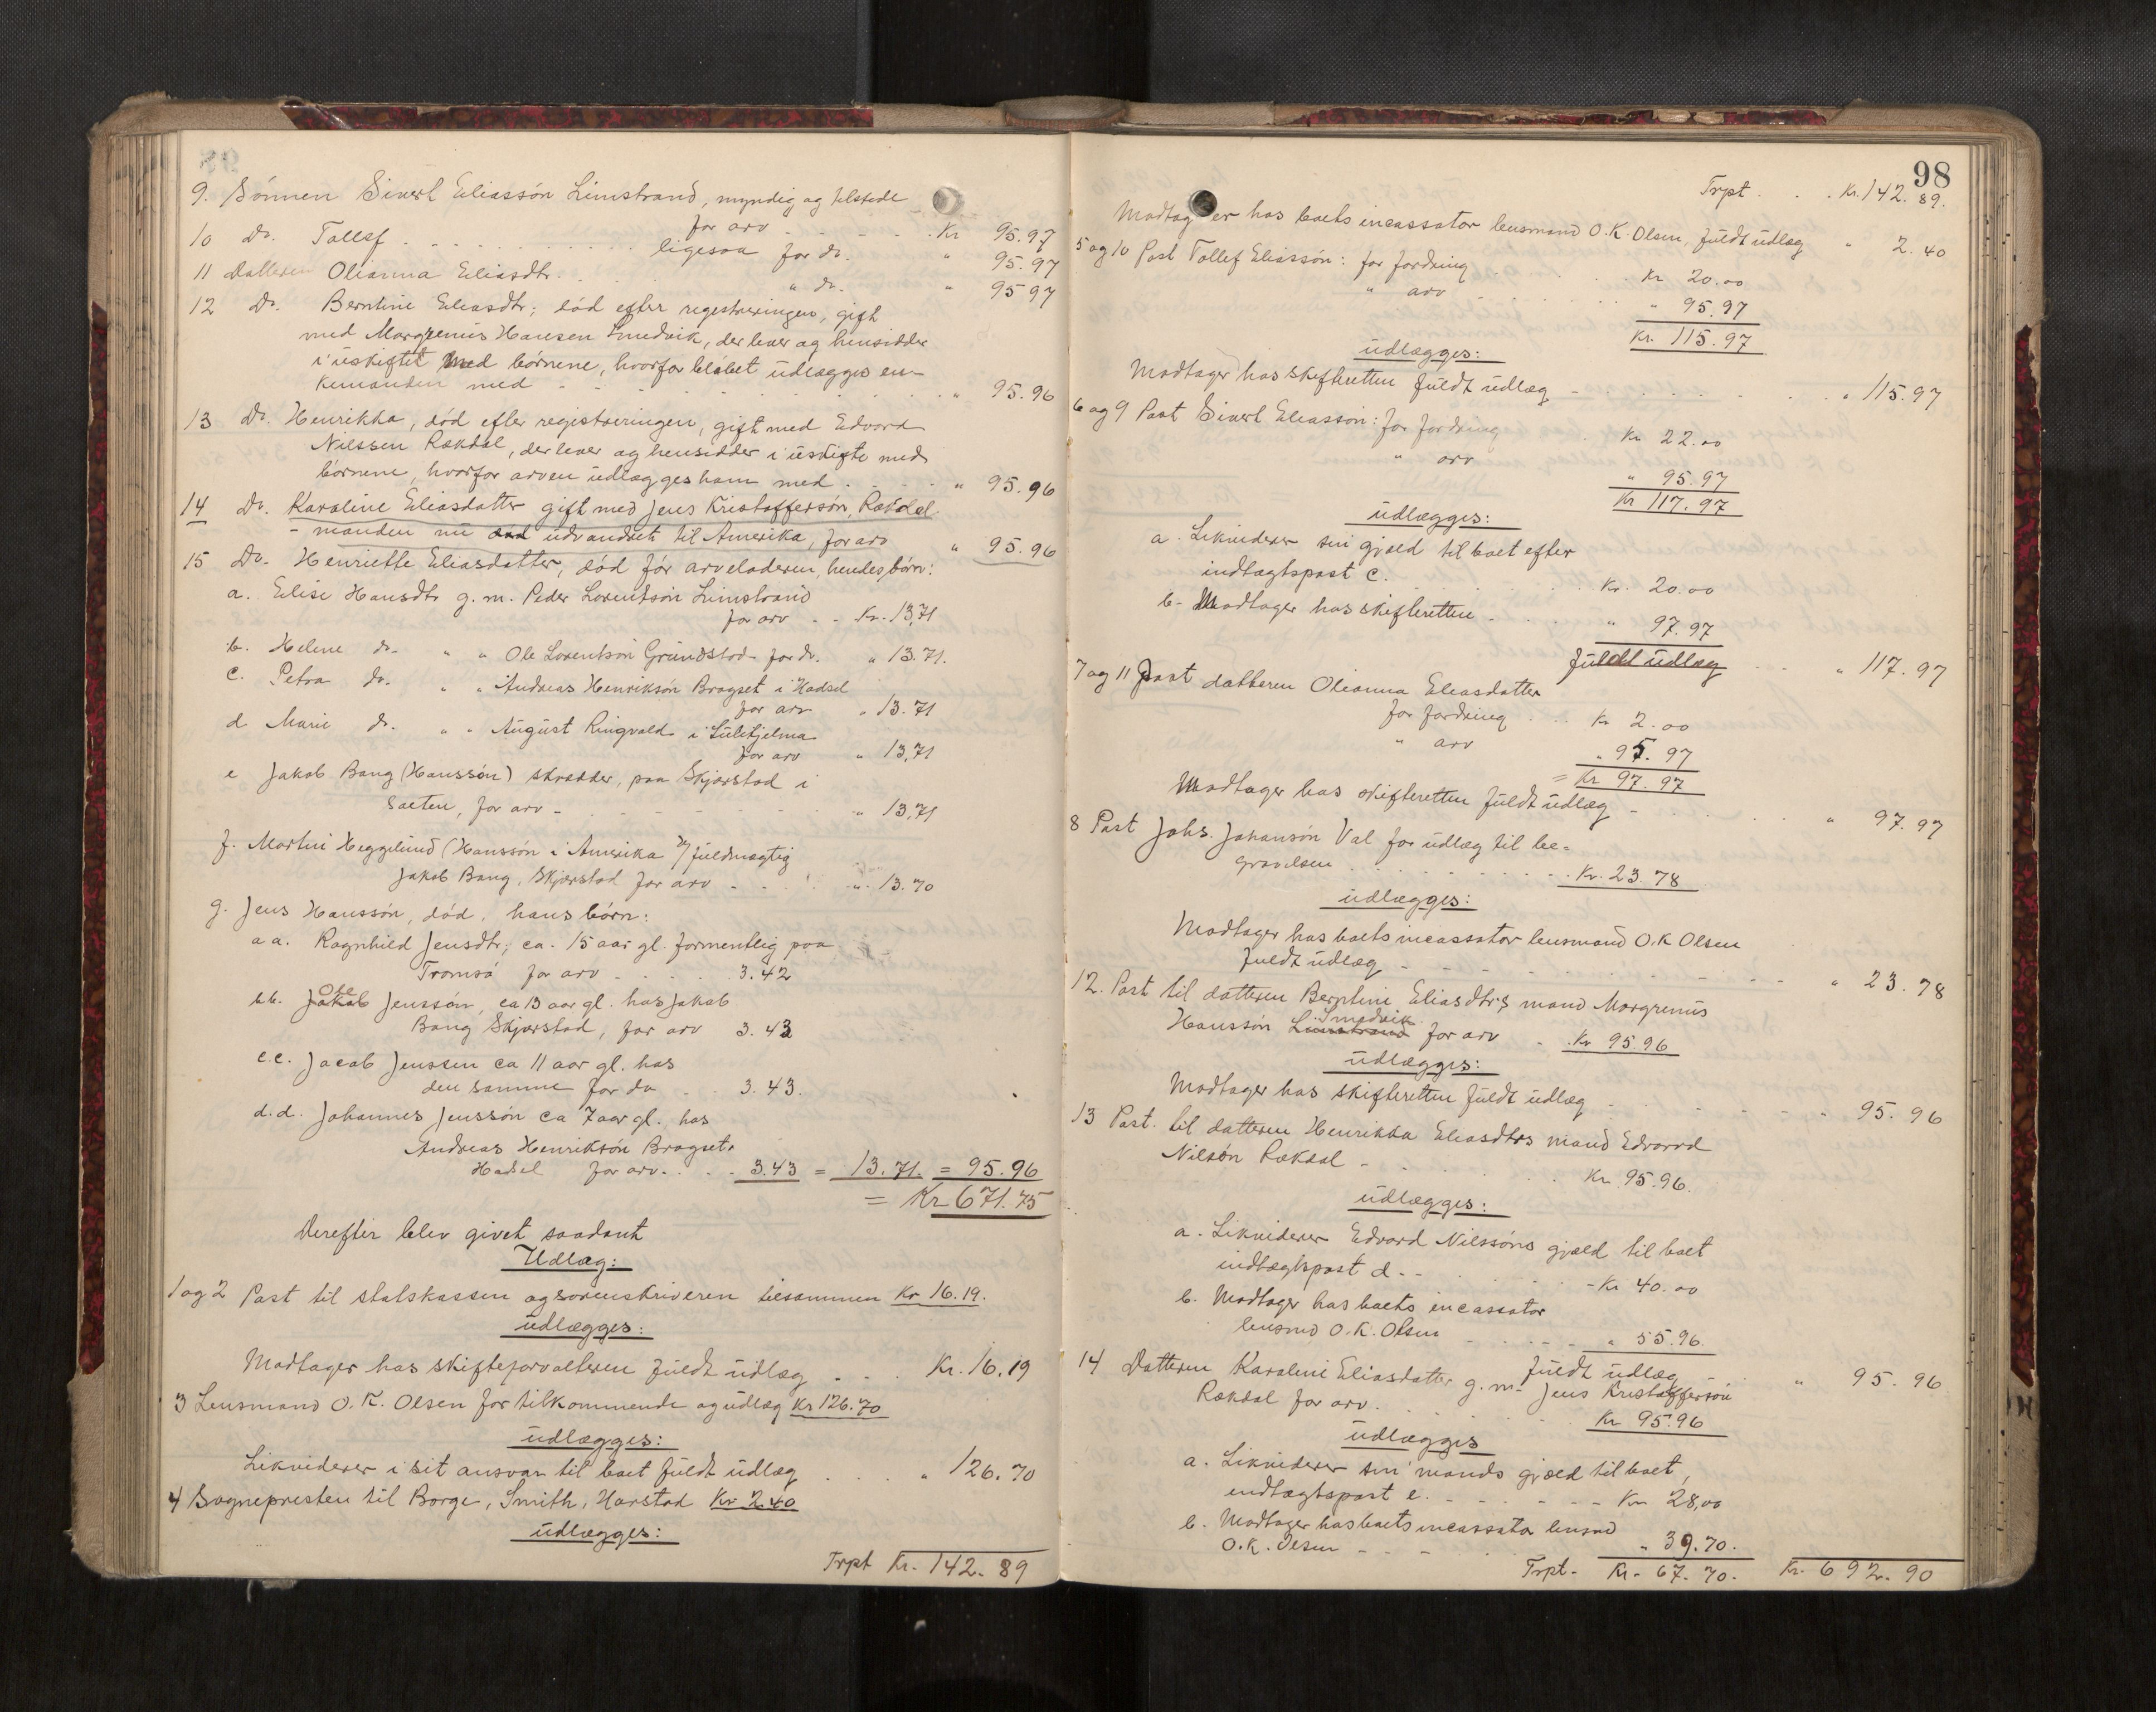 9. Sónnen Sivert Eliassón Limstrand, myndig og tilstede
for arv - - - - Kr 95.97
10 Do. Tollef . . . . . . . ligesaa for do. " 95.97
11 Datteren Olianna Eliasdtr. . . . " do. " 95 97
12 Do. Berntine Eliasdtr; dód efter registreringen, gift
med Margrenius Hansen Smedvik, der lever og hensidder
i uskiftet med bórnene, hvorfor belóbet udlægges en-
kemanden med - - - - " 95.96
13 Do. Henrikka, dód efter registreringen, gift med Edvard
Nilssen Rækdal, der lever og hensidder i uskifte med
bórnene, hvorfor arven udlægges ham med . - - " 95.96
14 Do. Karoline Eliasdatter gift med Jens Kristoffersón, Rækdal
- manden nu død udvandret til Amerika, for arv " 95.96
15 Do. Henriette Eliasdatter, dód fór arveladeren, hendes bórn:
a. Elise Hansdtr g. m. Peder Lorentsón Limstrand
for arv - - Kr. 13,71
b. Helene do. " " Ole Lorentsón Grundstad for do. " 13.71.
c. Petra do. " " Andreas Henriksón Bragset i Hadsel
for arv " 13.71
d Marie do. " " August Ringvald i Sulitjelma
for arv " 13,71
e Jakob Bang (Hanssón) skrædder, paa Skjærstad i
Salten, for arv - - - - " 13,71
f. Martin Heggelund (Hanssón i Amerika v/ fuldmægtig
Jakob Bang, Skjærstad for arv - - " 13.70
g. Jens Hanssón, dód, hans bórn:
a a. Ragnhild Jensdtr; ca. 15 aar gl. formentlig paa
Tromsó for arv - - - 3.42
Ole
b.b. Jakob Jenssón, ca 13 aar gl. hos Jakob
Bang Skjærstad, for arv 3.43
c.c. Jacob Jenssen ca 11 aar gl. hos
den samme for do - - 3.43.
d.d. Johannes Jenssón ca 7 aar gl. hos
Andreas Henriksón Bragset.
Hadsel for arv. . . . 3.43 = 13.71 = 95.96
= Kr 671.75
Derefter blev givet saadant
Udlæg:
1 og 2 Post til statskassen og sorenskriveren tilsammen Kr 16.19.
udlægges:
Modtager hos skifteforvalteren fuldt udlæg . . . Kr. 16.19
3 Lensmand O. K. Olsen for tilkommende og udlæg Kr 126.70
udlægges:
Likviderer i sit ansvar til boet fuldt udlæg . . . " 126.70
4 Sognepresten til Borge, Smith, Harstad Kr 2.40
udlægges:
Trpt Kr. 142.89
98
Trpt . . . Kr. 142.89.
Modtager hos boets incassator lensmand O. K. Olsen, fuldt udlæg " 2.40
5 og 10 Post Tollef Eliassón: for fordring . . . Kr 20.00
" arv . . . " 95.97
Kr. 115.97
udlægges:
Modtager hos skifteretten fuldt udlæg - . . . " 115.97
6 og 9 Post Sivert Eliasson: for fordring . Kr 22.00
" arv " 95.97
Kr 117.97
udlægges:
a. Likviderer sin gjæld til boet efter
indtægtspost c. . . . Kr. 20.00
b. Modtager hos skifteretten - . . " 97.97
fuldt udlæg . . " 117.97
7 og 11 Post datteren Olianna Eleasdatter
for fordring . . Kr 2.00
" arv " 95.97
= Kr 97.97
Modtager hos skifteretten fuldt udlæg - . . " 97.97
8 Post Johs. Johansón Val for udlæg til be-
gravelsen . . . Kr. 23.78
udlægges:
Modtager hos boets incassator lensmand O. K Olsen
fuldt udlæg - - - - " 23.78
12. Post til datteren Berntine Eliasdtr's mand Margrenius
Smedvik
Hanssón Limstrand for arv - Kr 95.96
udlægges:
Modtager hos skifteretten fuldt udlæg - - - " 95.96
13 Post. til datteren Henrikka Eliasdtrs mand Edvard
Nilsón Rækdal - . . . Kr. 95.96.
udlægges:
a. Likviderer Edvard Nilssóns gjæld til boet
indtægtspost d. - - - Kr 40.00
b. Modtager hos boets incassator
lensmd O. K. Olsen - - - " 55.96.
fuldt udlæg - - " 95.96
14 Datteren Karoline Eliasdatter g. m. Jens Kristoffersón
Rækdal for arv. . . . Kr 95.96
udlægges
a. Likviderer sin mands gjæld til boet,
indtægtspost e. - - - Kr 28,00
b. Modtager hos boets incassator lensmd
O. K. Olsen - - - " 39.70.
Trpt - Kr. 67.70. Kr. 692.90